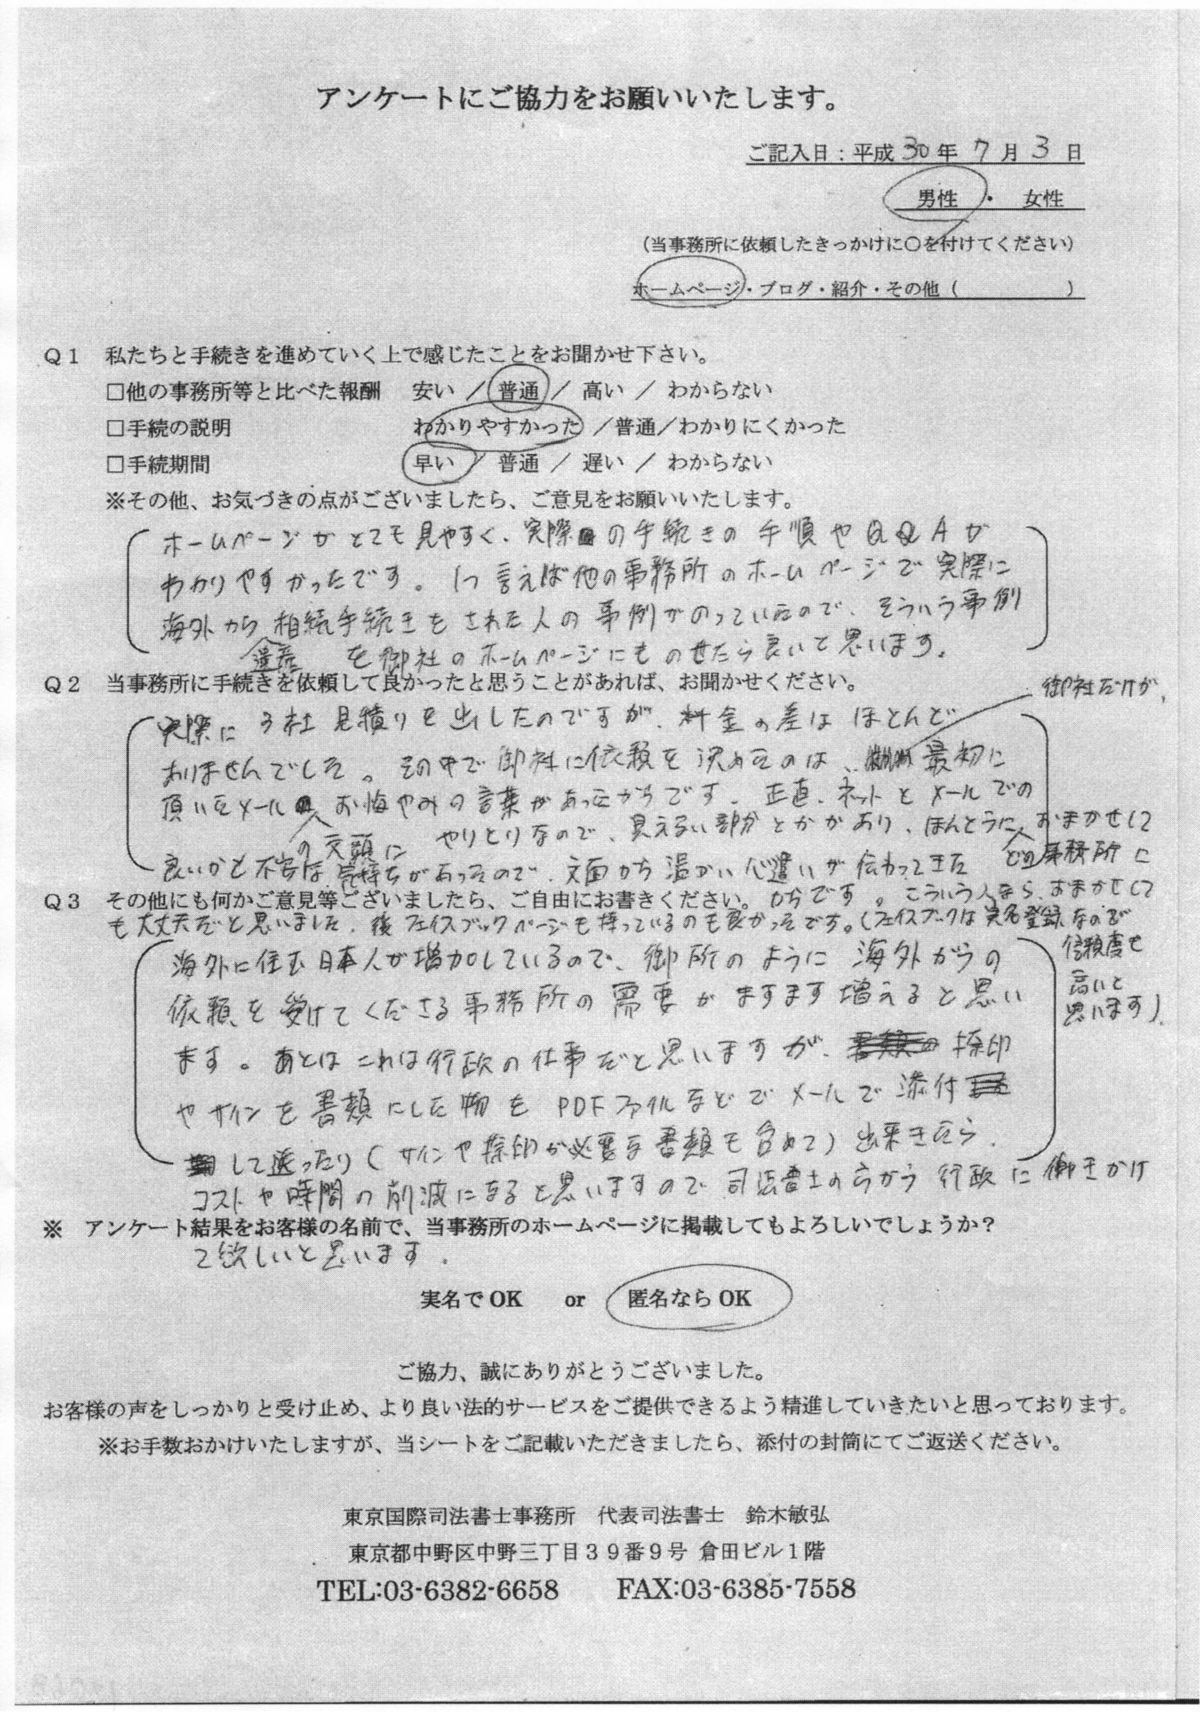 アンケートにご協力をお願いいたします。
ご記入日：平成 30 年 7 月 3 日
男性 ・ 女性
（当事務所に依頼したきっかけに○を付けてください）
ホームページ・ブログ・紹介・その他（　　　　　）
Q１　私たちと手続きを進めていく上で感じたことをお聞かせ下さい。
□他の事務所等と比べた報酬　安い ／ 普通 ／ 高い ／ わからない
□手続の説明　わかりやすかった ／普通／わかりにくかった
□手続期間　早い ／ 普通 ／ 遅い ／ わからない
※その他、お気づきの点がございましたら、ご意見をお願いいたします。
ホームページがとても見やすく、実際の手続きの手順やQ&Aが
わかりやすかったです。1つ言えば他の事務所のホームページで実際に
海外から相続手続きをされた人の事例がのっていたので、そういう事例
を御社のホームページにものせたら良いと思います。
遺産
Q２　当事務所に手続きを依頼して良かったと思うことがあれば、お聞かせください。
御社だけが、
実際に3社見積りを出したのですが、料金の差はほとんど
ありませんでした。その中で御社に依頼を決めたのは、最初に
頂いたメールの文頭にお悔やみの言葉があったからです。正直、ネットとメールでの
やりとりなので、見えない部分とかがあり、ほんとうにどの事務所におまかせして
良いかと不安な気持ちがあったので、文面から温かい心遣いが伝わってきた
Q３　その他にも何かご意見等ございましたら、ご自由にお書きください。
からです。こういう人なら、おまかせして
も大丈夫だと思いました。後フェイスブックページも持っているのも良かったです。（フェイスブックは実名登録なので
信頼度も
高いと
思います）。
海外に住む日本人が増加しているので、御所のように海外からの
依頼を受けてくださる事務所の需要がますます増えると思い
ます。あとはこれは行政の仕事だと思いますが、捺印
やサインを書類にした物をPDFファイルなどでメールで添付
して送ったり（サインや捺印が必要な書類も含めて）出来きたら、
コストや時間の削減になると思いますので司法書士の方から行政に働きかけ
※　アンケート結果をお客様の名前で、当事務所のホームページに掲載してもよろしいでしょうか？
て欲しいと思います。
実名でOK　or　匿名ならOK
ご協力、誠にありがとうございました。
お客様の声をしっかりと受け止め、より良い法的サービスをご提供できるよう精進していきたいと思っております。
※お手数おかけいたしますが、当シートをご記載いただきましたら、添付の封筒にてご返送ください。
東京国際司法書士事務所　代表司法書士　鈴木敏弘
東京都中野区中野三丁目３９番９号 倉田ビル１階
TEL:03-6382-6658　FAX:03-6385-7558